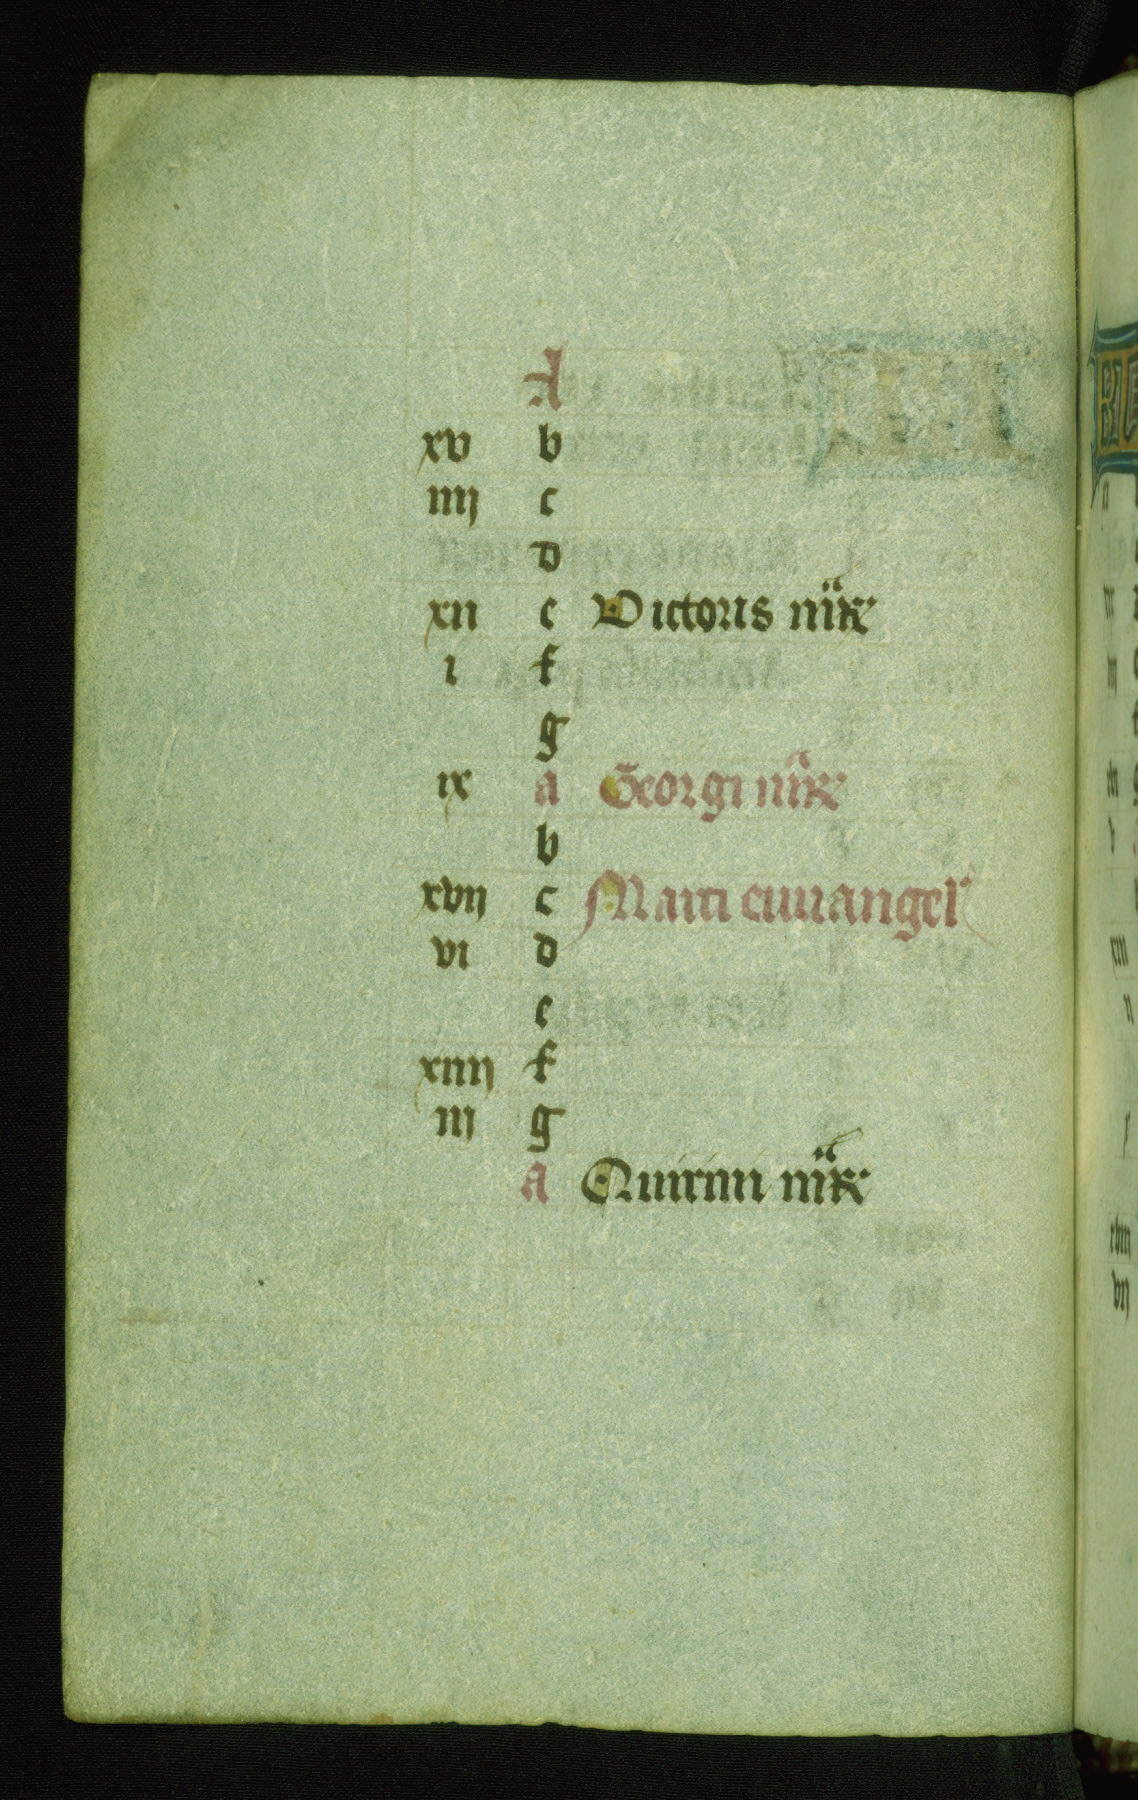 A
xv b
iiij c
d
xii e Victoris mr̃
i f
g
ix a Georgi mr̃
b
xvij c Marci euuangel'
vi d
e
xiiij f
iij g
a Quirini mr̃